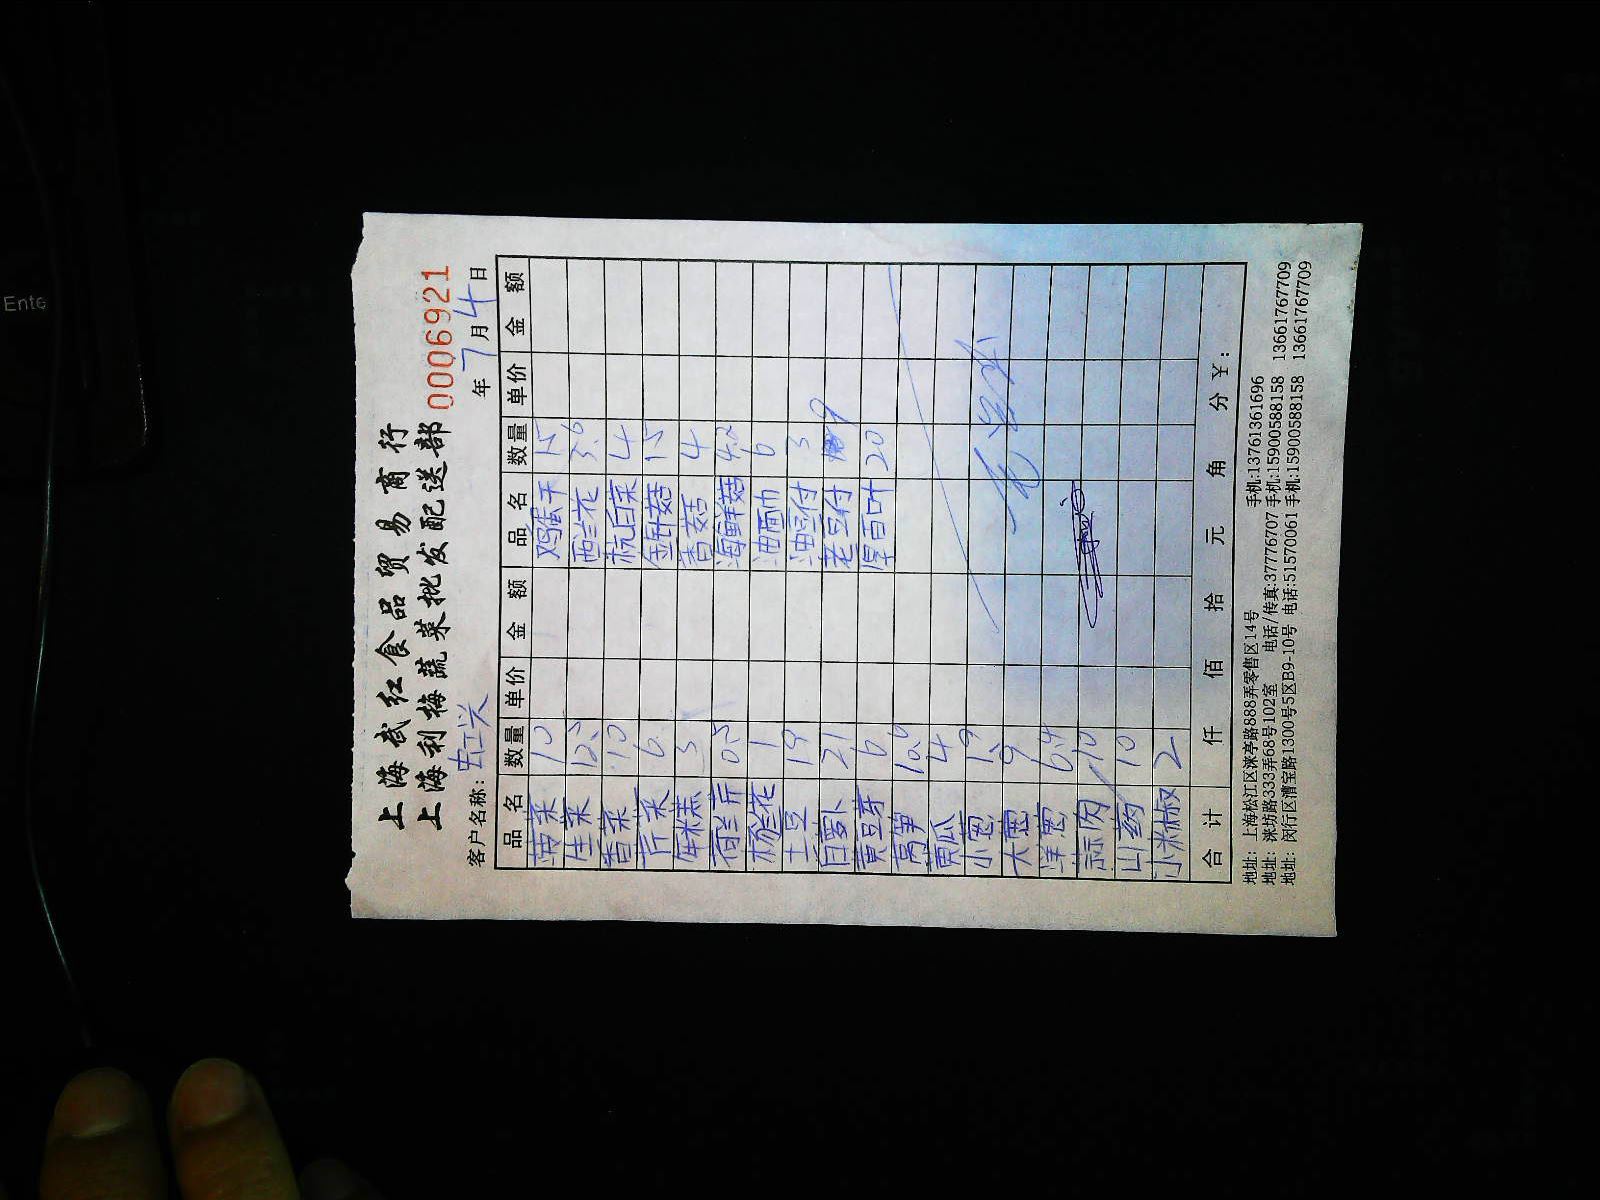 Ente
上海武红食品贸易商行
上海利梅蔬菜批发配送部
0006921
客户名称: 宏兴 年 7 月 4 日
品名 数量 单价 金额 品名 数量 单价 金额
10 鸡蛋干 15
生菜 12.5 西兰花 3.6
香菜 10 杭白菜 4
芹菜 6 金针菇 15
年糕 5 香菇 4
荷兰芹 0.5 海鲜菇 4.2
杨兰花 1 油面巾 6
土豆 19 油豆付 3
白萝卜 21 老豆付 9
黄豆芽 6 厚百叶 20
莴笋 10.6
黄瓜 4
小葱 1.9
大葱 9
洋葱 6.4
蒜肉 10
山药 10
小米椒 2
合计 仟 佰 拾 元 角 分 ¥:
地址: 上海松江区涞亭路888弄零售区14号 手机:13761361696
地址: 涞坊路333弄68号102室 电话/传真:37776707 手机:15900588158 13661767709
地址: 闵行区漕宝路1300号5区B9-10号 电话:51570061 手机:15900588158 13661767709